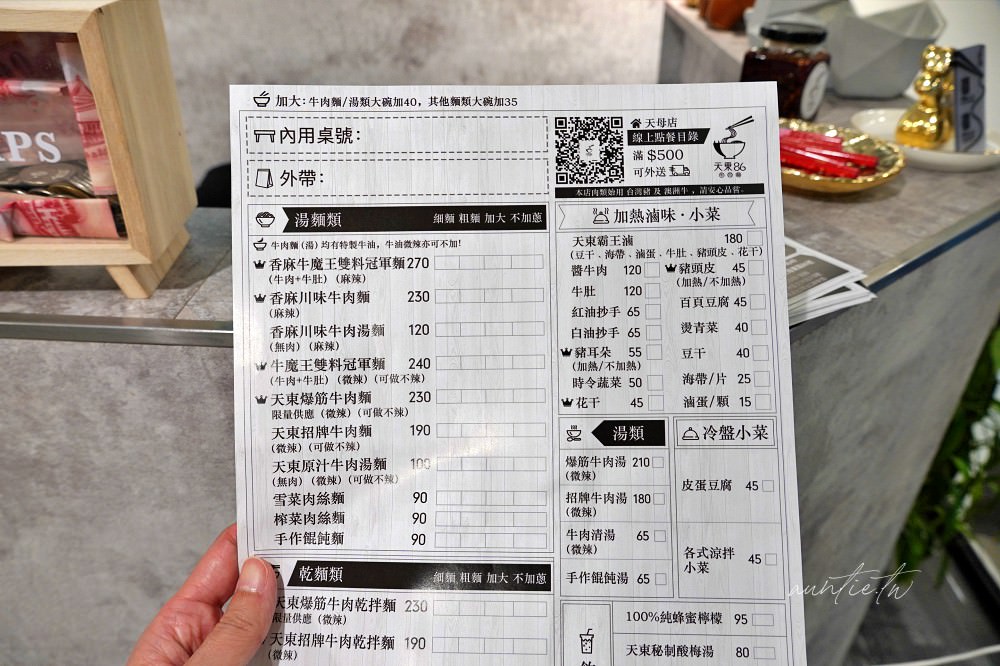 加大：牛肉麵/湯類大碗加40，其他麵類大碗加35
內用桌號：
外帶：
天母店
線上點餐目錄
滿 $500
可外送
天東86
本店肉類始用 台灣豬 及 澳洲牛 ，請安心品嘗。
湯麵類 細麵 粗麵 加大 不加蔥
牛肉麵 (湯) 均有特製牛油，牛油微辣亦可不加!
香麻牛魔王雙料冠軍麵270
(牛肉+牛肚) (麻辣)
香麻川味牛肉麵 230
(麻辣)
香麻川味牛肉湯麵 120
(無肉) (麻辣)
牛魔王雙料冠軍麵 240
(牛肉+牛肚) (微辣) (可做不辣)
天東爆筋牛肉麵 230
限量供應 (微辣) (可做不辣)
天東招牌牛肉麵 190
(微辣) (可做不辣)
天東原汁牛肉湯麵 100
(無肉) (微辣) (可做不辣)
雪菜肉絲麵 90
榨菜肉絲麵 90
手作餛飩麵 90
乾麵類 細麵 粗麵 加大 不加蔥
天東爆筋牛肉乾拌麵 230
限量供應 (微辣)
天東招牌牛肉乾拌麵 190
(微辣)
加熱滷味·小菜
天東霸王滷 180
(豆干、海帶、滷蛋、牛肚、豬頭皮、花干)
醬牛肉 120
牛肚 120
紅油抄手 65
白油抄手 65
豬耳朵 55
(加熱/不加熱)
時令蔬菜 50
花干 45
豬頭皮 45
(加熱/不加熱)
百頁豆腐 45
燙青菜 40
豆干 40
海帶/片 25
滷蛋/顆 15
湯類
爆筋牛肉湯 210
(微辣)
招牌牛肉湯 180
(微辣)
牛肉清湯 65
(微辣)
手作餛飩湯 65
冷盤小菜
皮蛋豆腐 45
各式涼拌
小菜 45
100%純蜂蜜檸檬 95
天東秘制酸梅湯 80
PS
auntie.tw